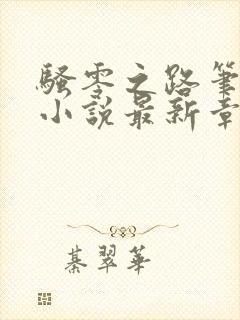 騷零之路筆
小說最新章
綦翠華